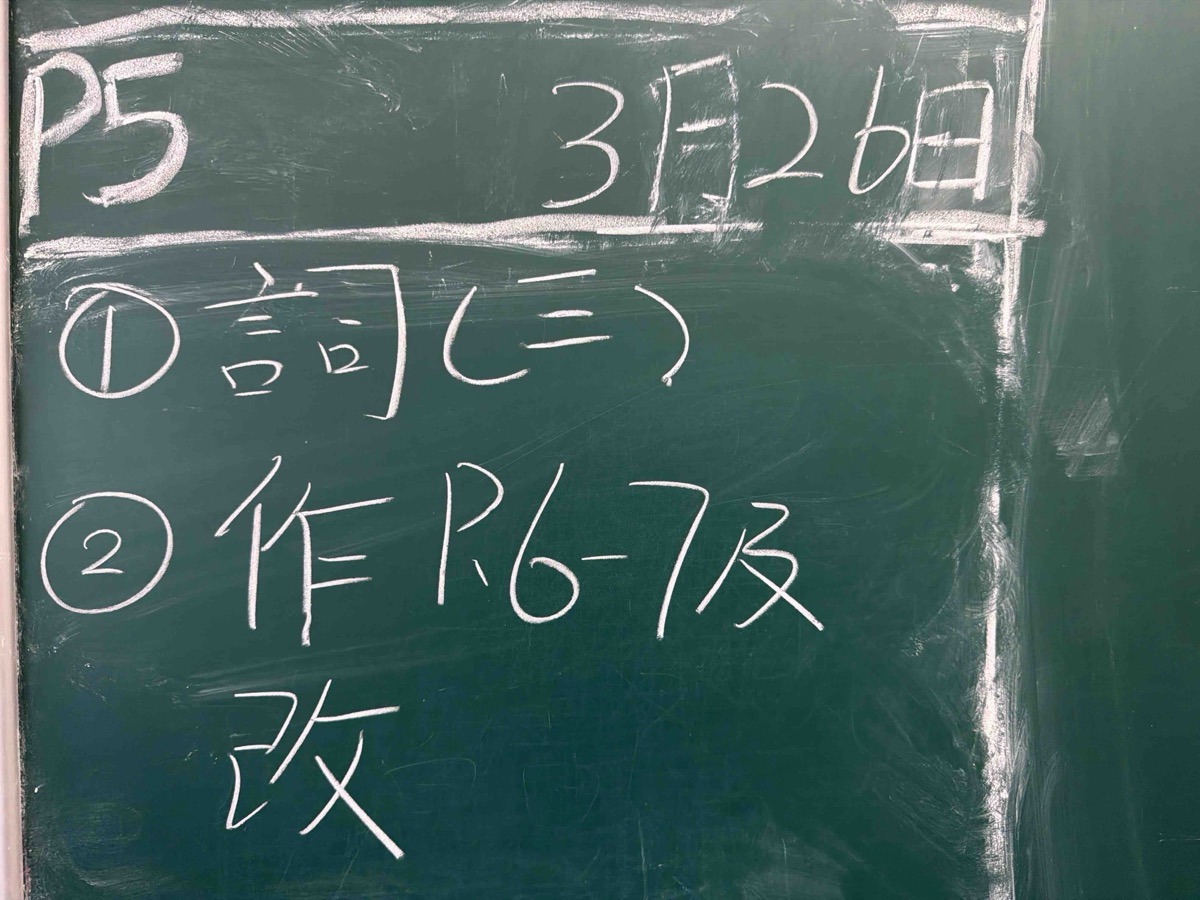 P5 3月26日
① 詞(三)
② 作 P.6-7及
改